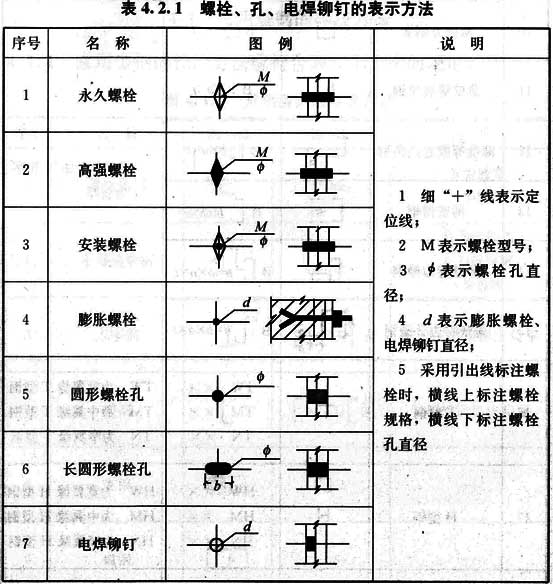 表4.2.1 螺栓、孔、电焊铆钉的表示方法
序号 名称 图例 说明
1 永久螺栓 M ϕ
2 高强螺栓 M ϕ
3 安装螺栓 M ϕ
4 膨胀螺栓 d
5 圆形螺栓孔 ϕ
6 长圆形螺栓孔 ϕ b
7 电焊铆钉 d
1 细“+”线表示定
位线;
2 M表示螺栓型号;
3 ϕ表示螺栓孔直
径;
4 d表示膨胀螺栓、
电焊铆钉直径;
5 采用引出线标注螺
栓时,横线上标注螺栓
规格,横线下标注螺栓
孔直径